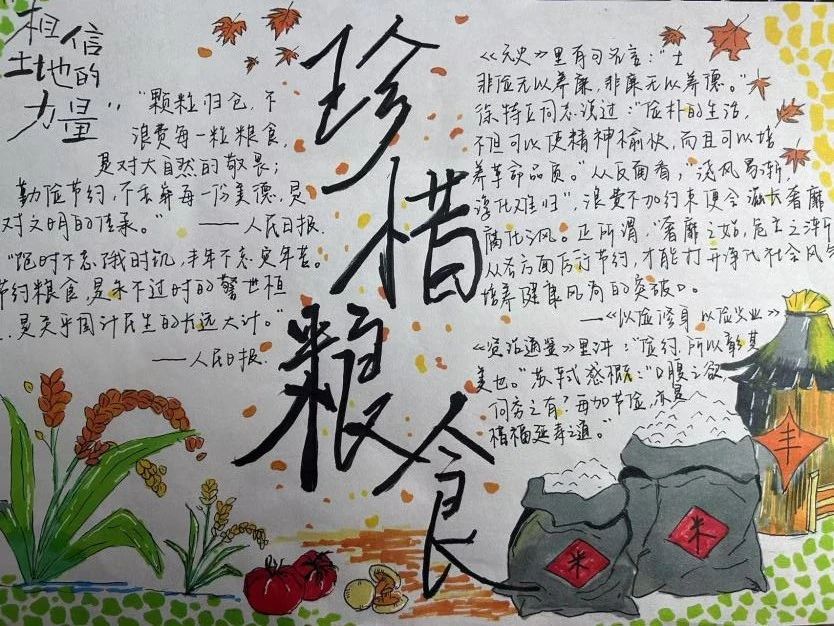 相信
土地的
力量
"颗粒归仓,不
浪费每一粒粮食,
是对大自然的敬畏;
勤俭节约,不丢弃每一份美德,是
对文明的传承。"
——人民日报.
"饱时不忘饿时饥,丰年不忘灾年苦。
节约粮食,是永不过时的警世恒
,是关乎国计民生的长远大计。"
——人民日报.
珍惜粮食
《元史》里有句名言:"士
非俭无以养廉,非廉无以养德。"
徐特立同志说过:"俭朴的生活,
不但可以使精神愉快,而且可以培
养革命品质。"从反面看,"浇风易渐,
淳化难归",浪费不加约束便会滋长奢靡
腐化之风。正所谓"奢靡之始,危亡之渐
从各方面厉行节约,才能打开净化社会风气
培养健康风尚的突破口。
——《以俭修身 以俭兴业》
《资治通鉴》里讲:"俭约,所以彰其
美也。"苏轼感慨:"口腹之欲,
何穷之有?每加节俭,亦是
惜福延寿之道。"
丰
米
米